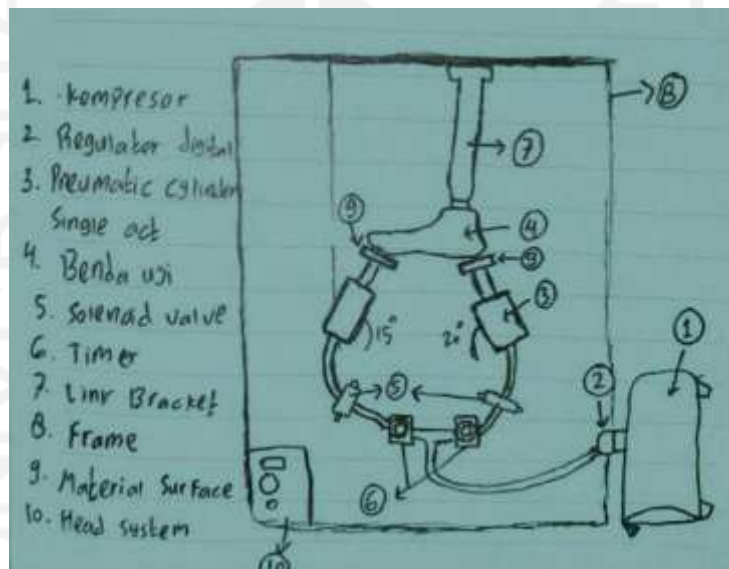 1. Kompresor
2. Regulator digital
3. Pneumatic cylinder
Single act
4. Benda uji
5. Solenoid valve
6. Timer
7. Linr Bracket
8. Frame
9. Material Surface
10. Head system
8
7
9
4
9
3
15°
20°
1
5
2
6
10